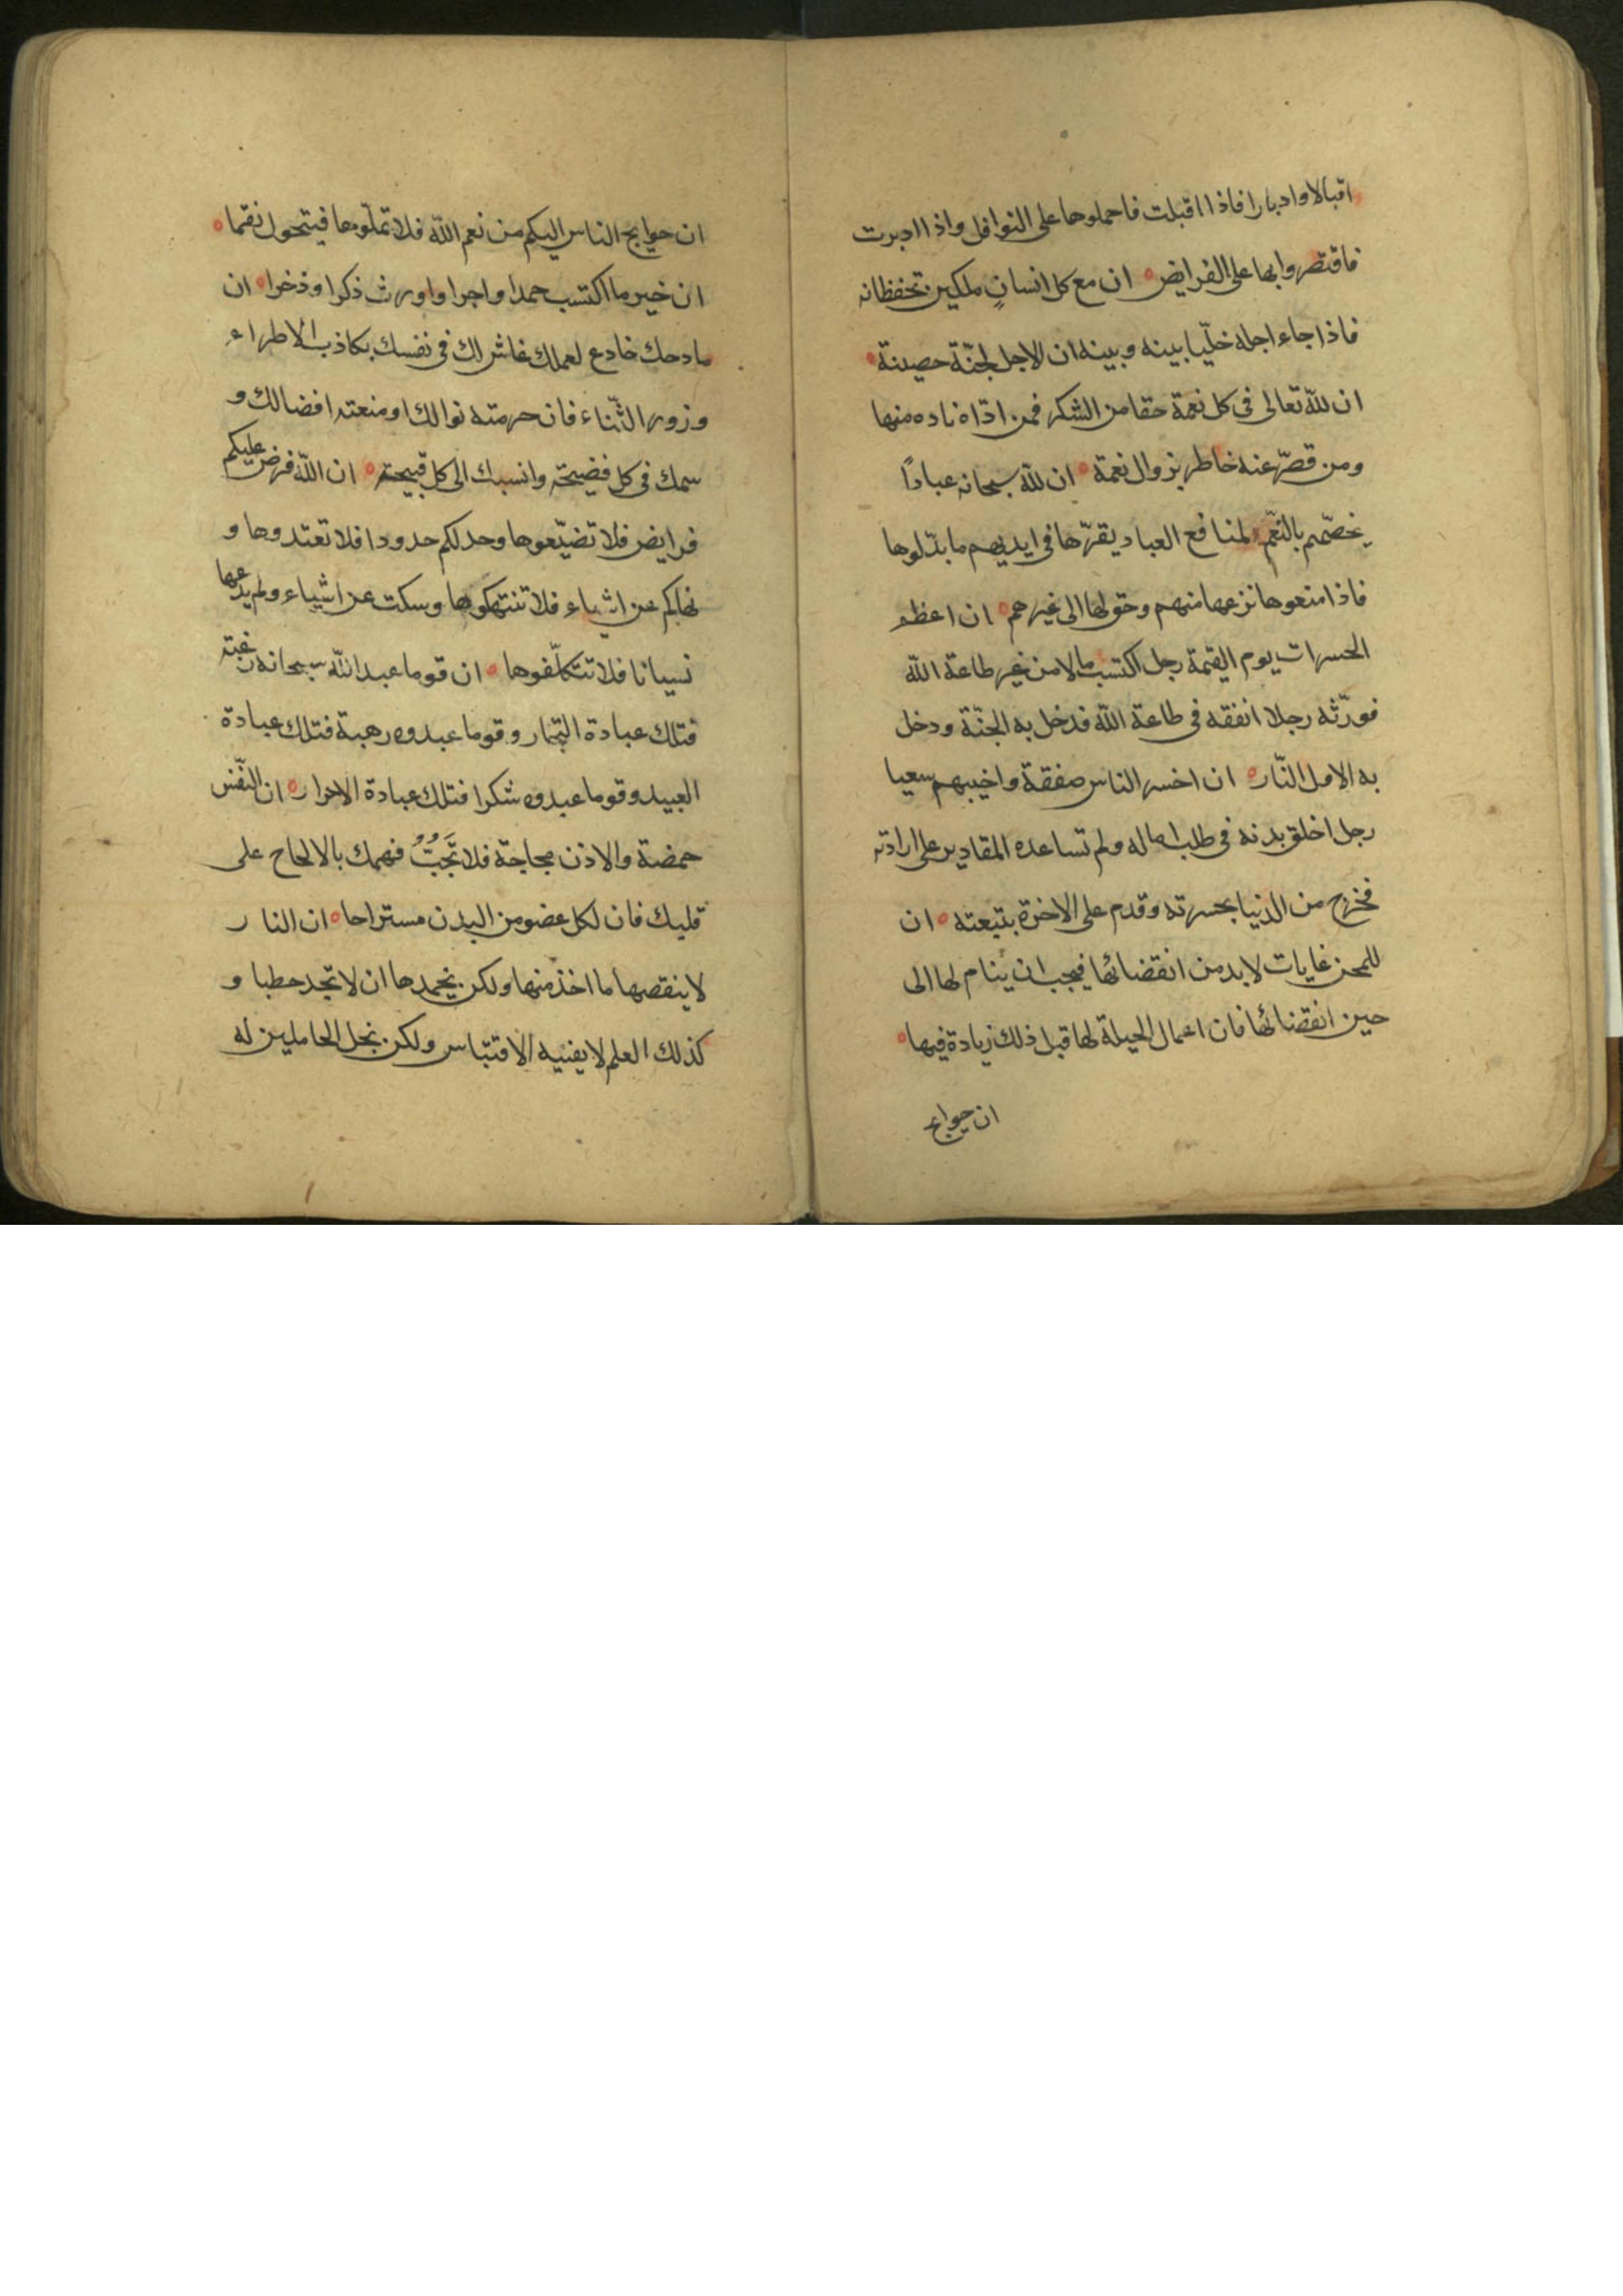 اقبالا وادبارا فاذا اقبلت فاحملوها على النوافل واذا ادبرت
فاقتصروا بها على الفرايض ان مع كل انسانٍ ملكين يحفظانه
فاذا جاء اجله خلّيا بينه وبينه ان الاجل لجنّة حصينة
ان لله تعالى فى كل نعمة حقا من الشكر فمن ادّاه زاده منها
ومن قصّر عنه خاطر بزوال نعمة ان لله سبحانه عبادًا
يخصّهم بالنّعم لمنافع العباد يقرّها فى ايديهم ما بذلوها
فاذا منعوها نزعها منهم وحولها الى غيرهم ان اعظم
الحسرات يوم القيمة رجل اكتسب مالا من غير طاعة الله
فورّثه رجلا انفقه فى طاعة الله فدخل به الجنّة ودخل
به الاول النّار ان اخسر الناس صفقة واخيبهم سعيا
رجل اخلق بدنه فى طلب اماله ولم تساعده المقادير على ارادته
فخرج من الدنيا بحسرته وقدم على الاخرة بتبعته ان
للمحن غايات لابد من انقضائها فيجب ان ينام لها الى
حين انقضائها فان اعمال الحيلة لها قبل ذلك زيادة فيها
ان حوايج
ان حوايج الناس اليكم من نعم الله فلا تملّوها فيتحول نقما
ان خير ما اكتسب حمدا واجرا واورث ذكرا وذخرا ان
مادحك خادع لعملك غاش لك فى نفسك بكاذب الاطراء
وزور الثّناء فان حرمته نوالك او منعته افضالك و
سمك فى كل فضيحة وانسبك الى كل قبيحة ان الله فرض عليكم
فرايض فلا تضيّعوها وحد لكم حدودا فلا تعتدوها و
نهاكم عن اشياء فلا تنتهكوها وسكت عن اشياء ولم يدعها
نسيانا فلا تتكلّفوها ان قوما عبد الله سبحانه رغبة
فتلك عبادة التجار وقوما عبدوه رهبة فتلك عبادة
العبيد وقوما عبدوه شكرا فتلك عبادة الاحرار ان النّفس
حمضة والاذن مجاجة فلا تَجُبَّ فهمك بالالحاح على
قلبك فان لكل عضو من البدن مستراحا ان النار
لا ينقصها ما اخذ منها ولكن يخمدها ان لا تجد حطبا و
كذلك العلم لا يفنيه الاقتباس ولكن بخل الحاملين له